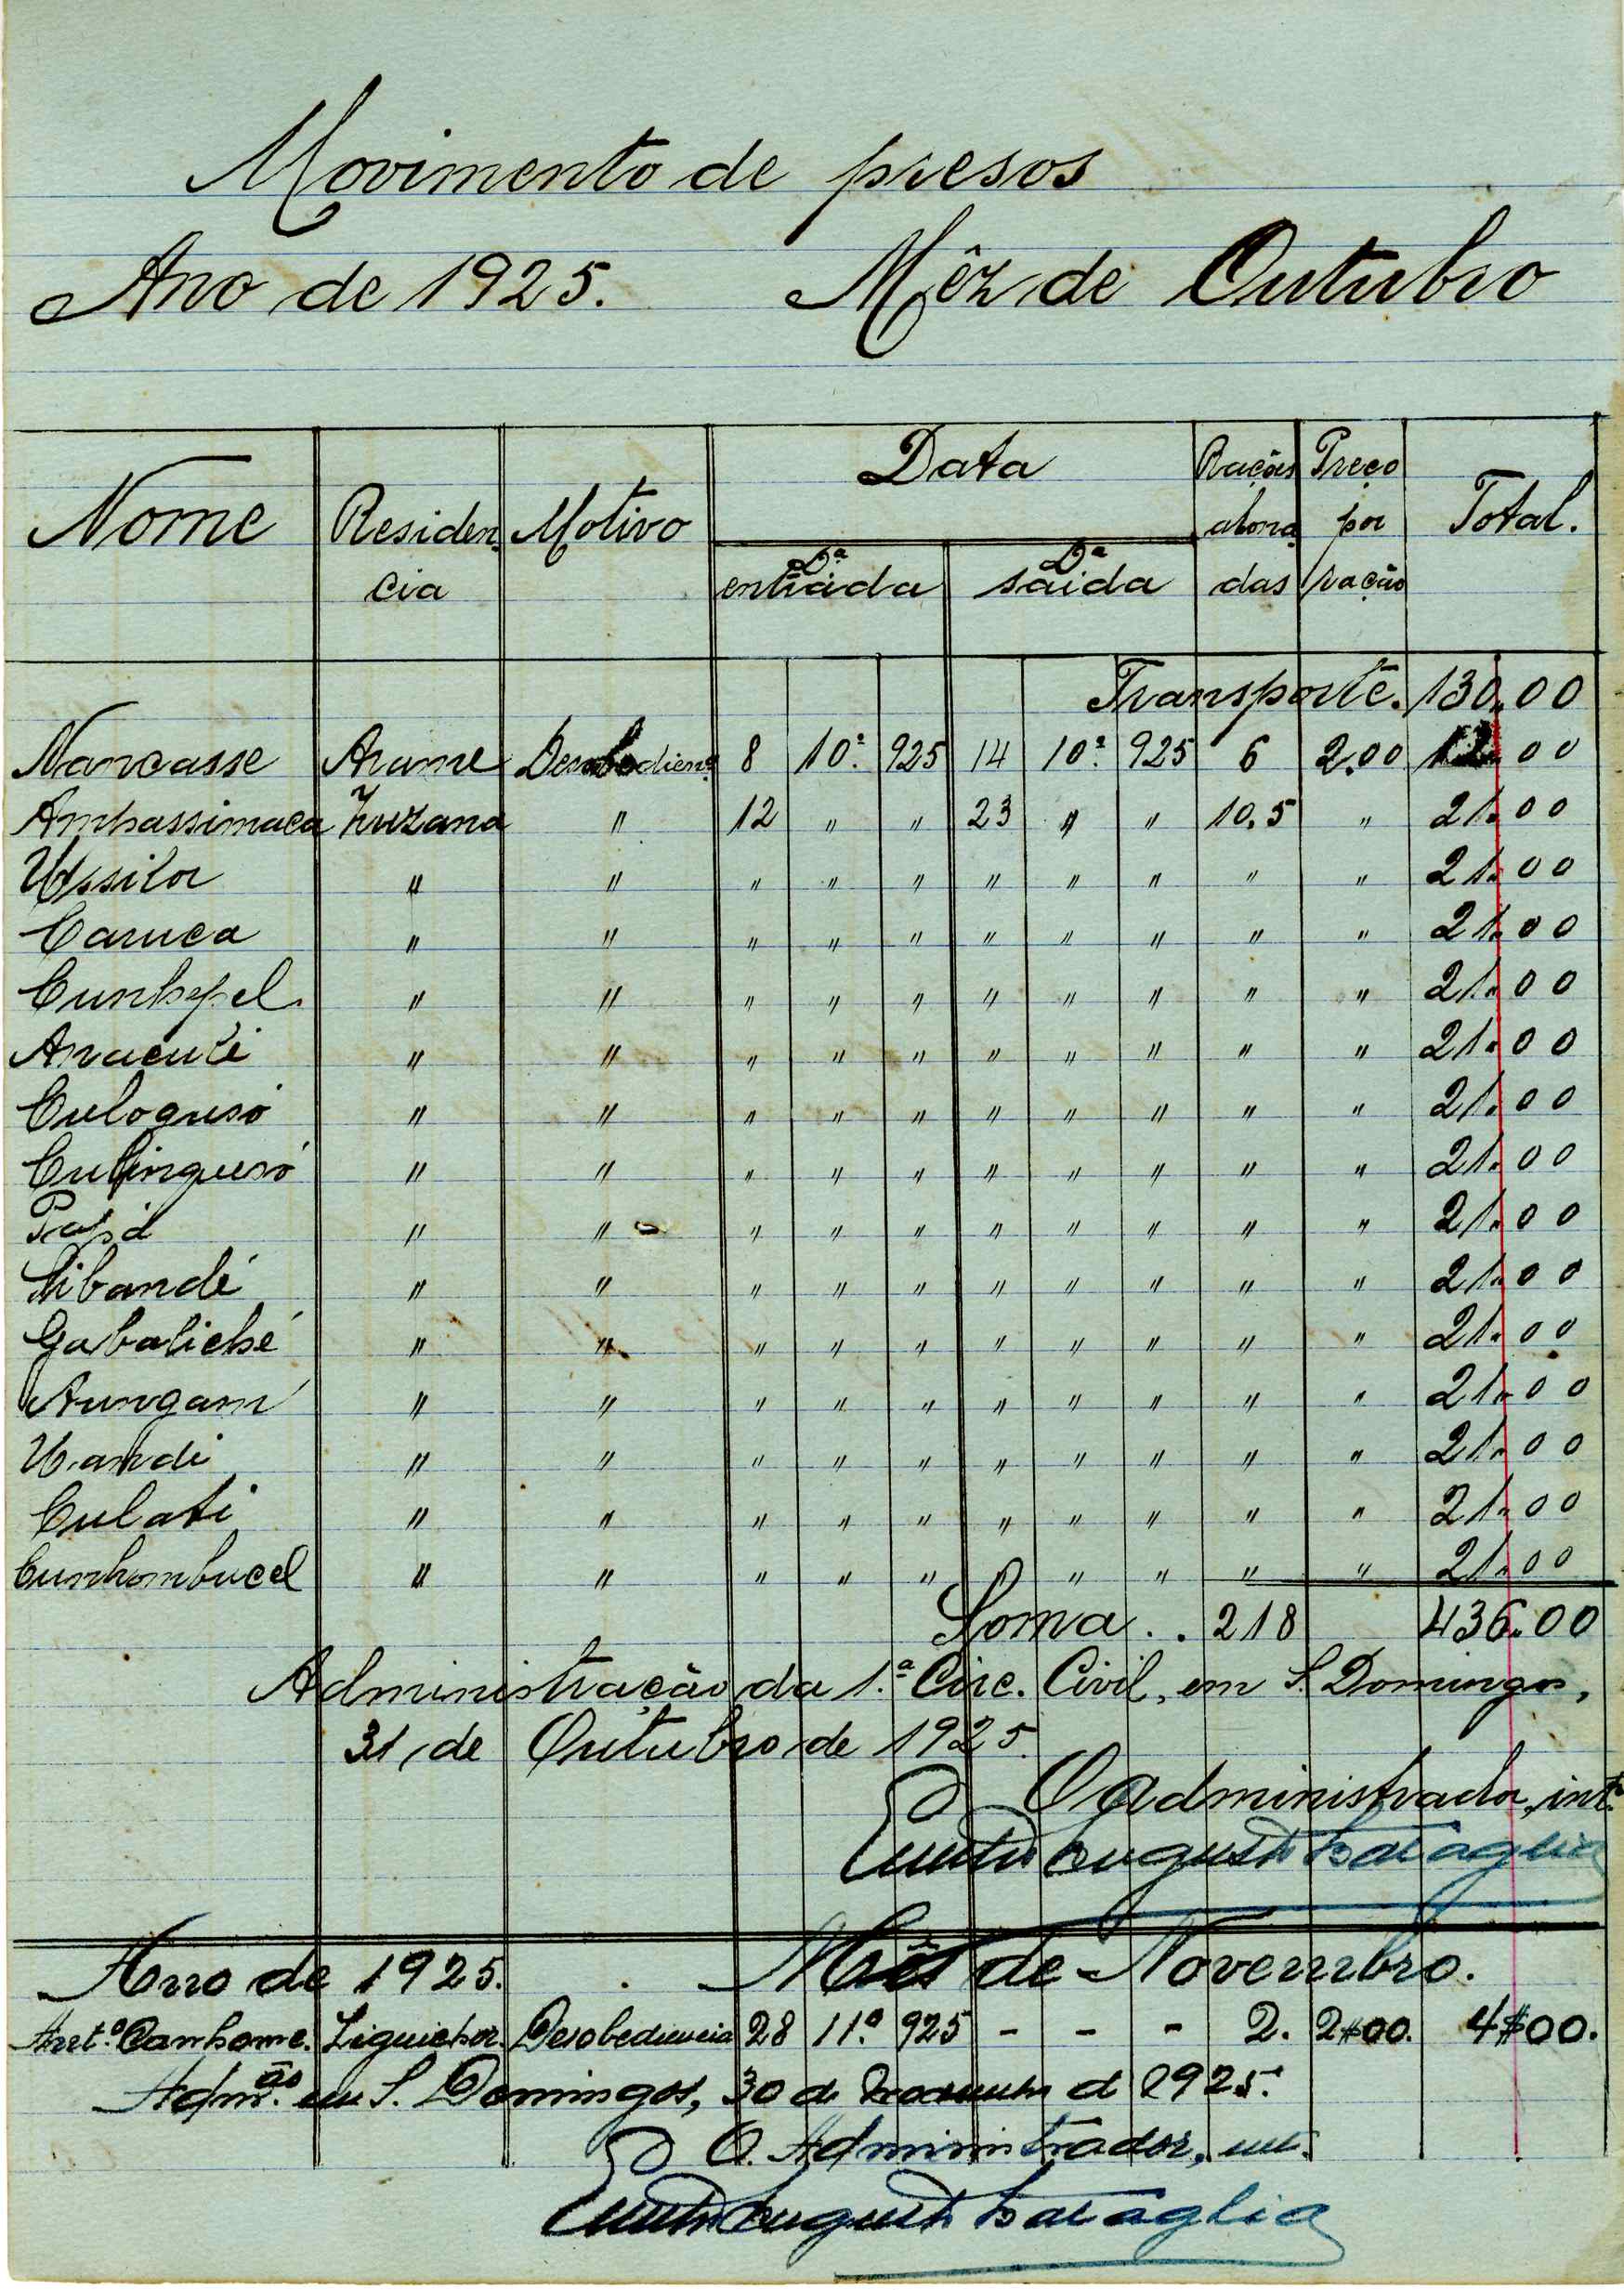 Movimento de presos
Ano de 1925. Mêz de Outubro
Nome Residencia Motivo Data Da entrada Da saida Rações abonadas Preço por ração Total.
Transporte. 130.00
Nancasse Arame 8 10º 925 14 10º 925 6 2.00 12.00
Ambassimaca Zuzana " 12 " " 23 " " 10,5 " 21.00
Ussilor " " " " " " " " " " 21.00
Caruca " " " " " " " " " " 21.00
" " " " " " " " " " 21.00
" " " " " " " " " " 21.00
Culoguso " " " " " " " " " " 21.00
Culinguesó " " " " " " " " " " 21.00
" " " " " " " " " " 21.00
Sibandé " " " " " " " " " " 21.00
Gabaliché " " " " " " " " " " 21.00
Aungam " " " " " " " " " " 21.00
Uandi " " " " " " " " " " 21.00
Culati " " " " " " " " " " 21.00
Cunhombucel " " " " " " " " " " 21.00
Soma . . 218 436.00
Administração da 1.ª Circ. Civil, em S. Domingos,
31, de Outubro de 1925.
O Administrador, int.º
Augusto
Ano de 1925. Mês de Novembro.
Antº Canhame. Desobediencia 28 11º 925 - - - 2. 2$00. 4$00.
Admão. em S. Domingos, 30 de Novembro de 1925.
O Administrador, int.
Augusto